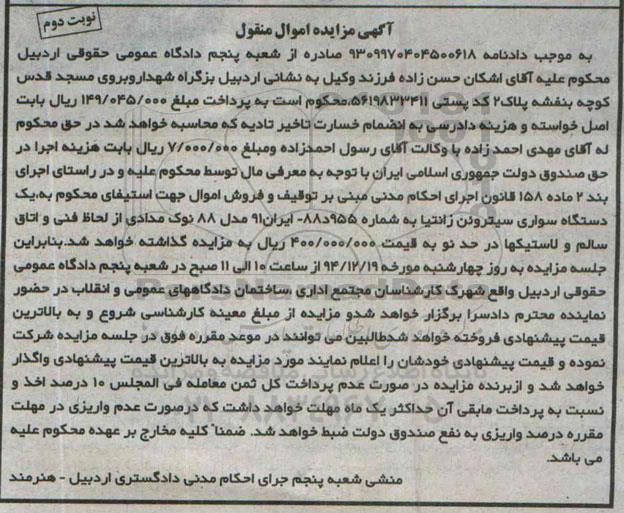 نوبت دوم
آگهی مزایده اموال منقول
به موجب دادنامه ۹۳۰۹۹۷۰۴۰۴۵۰۰۶۱۸ صادره از شعبه پنجم دادگاه عمومی حقوقی اردبیل
محکوم علیه آقای اشکان حسن زاده فرزند وکیل به نشانی اردبیل بزگراه شهدارو‌بروی مسجد قدس
کوچه بنفشه پلاک۲ کد پستی ۵۶۱۹۸۳۳۴۱۱.محکوم است به پرداخت مبلغ ۱۴۹/۰۴۵/۰۰۰ ریال بابت
اصل خواسته و هزینه دادرسی به انضمام خسارت تاخیر تادیه که محاسبه خواهد شد در حق محکوم
له آقای مهدی احمد زاده با وکالت آقای رسول احمدزاده ومبلغ ۷/۰۰۰/۰۰۰ ریال بابت هزینه اجرا در
حق صندوق دولت جمهوری اسلامی ایران با توجه به معرفی مال توسط محکوم علیه و در راستای اجرای
بند ۲ ماده ۱۵۸ قانون اجرای احکام مدنی مبنی بر توقیف و فروش اموال جهت استیفای محکوم به،یک
دستگاه سواری سیتروئن زانتیا به شماره ۹۵۵د۸۸- ایران۹۱ مدل ۸۸ نوک مدادی از لحاظ فنی و اتاق
سالم و لاستیکها در حد نو به قیمت ۴۰۰/۰۰۰/۰۰۰ ریال به مزایده گذاشته خواهد شد.بنابراین
جلسه مزایده به روز چهارشنبه مورخه ۹۴/۱۲/۱۹ از ساعت ۱۰ الی ۱۱ صبح در شعبه پنجم دادگاه عمومی
حقوقی اردبیل واقع شهرک کارشناسان مجتمع اداری ،ساختمان دادگاههای عمومی و انقلاب در حضور
نماینده محترم دادسرا برگزار خواهد شدو مزایده از مبلغ معینه کارشناسی شروع و به بالاترین
قیمت پیشنهادی فروخته خواهد شدطالبین می توانند در موعد مقرره فوق در جلسه مزایده شرکت
نموده و قیمت پیشنهادی خودشان را اعلام نمایند مورد مزایده به بالاترین قیمت پیشنهادی واگذار
خواهد شد و ازبرنده مزایده در صورت عدم پرداخت کل ثمن معامله فی المجلس ۱۰ درصد اخذ و
نسبت به پرداخت مابقی آن حداکثر یک ماه مهلت خواهد داشت که درصورت عدم واریزی در مهلت
مقرره درصد واریزی به نفع صندوق دولت ضبط خواهد شد. ضمنا" کلیه مخارج بر عهده محکوم علیه
می باشد.
منشی شعبه پنجم جرای احکام مدنی دادگستری اردبیل - هنرمند